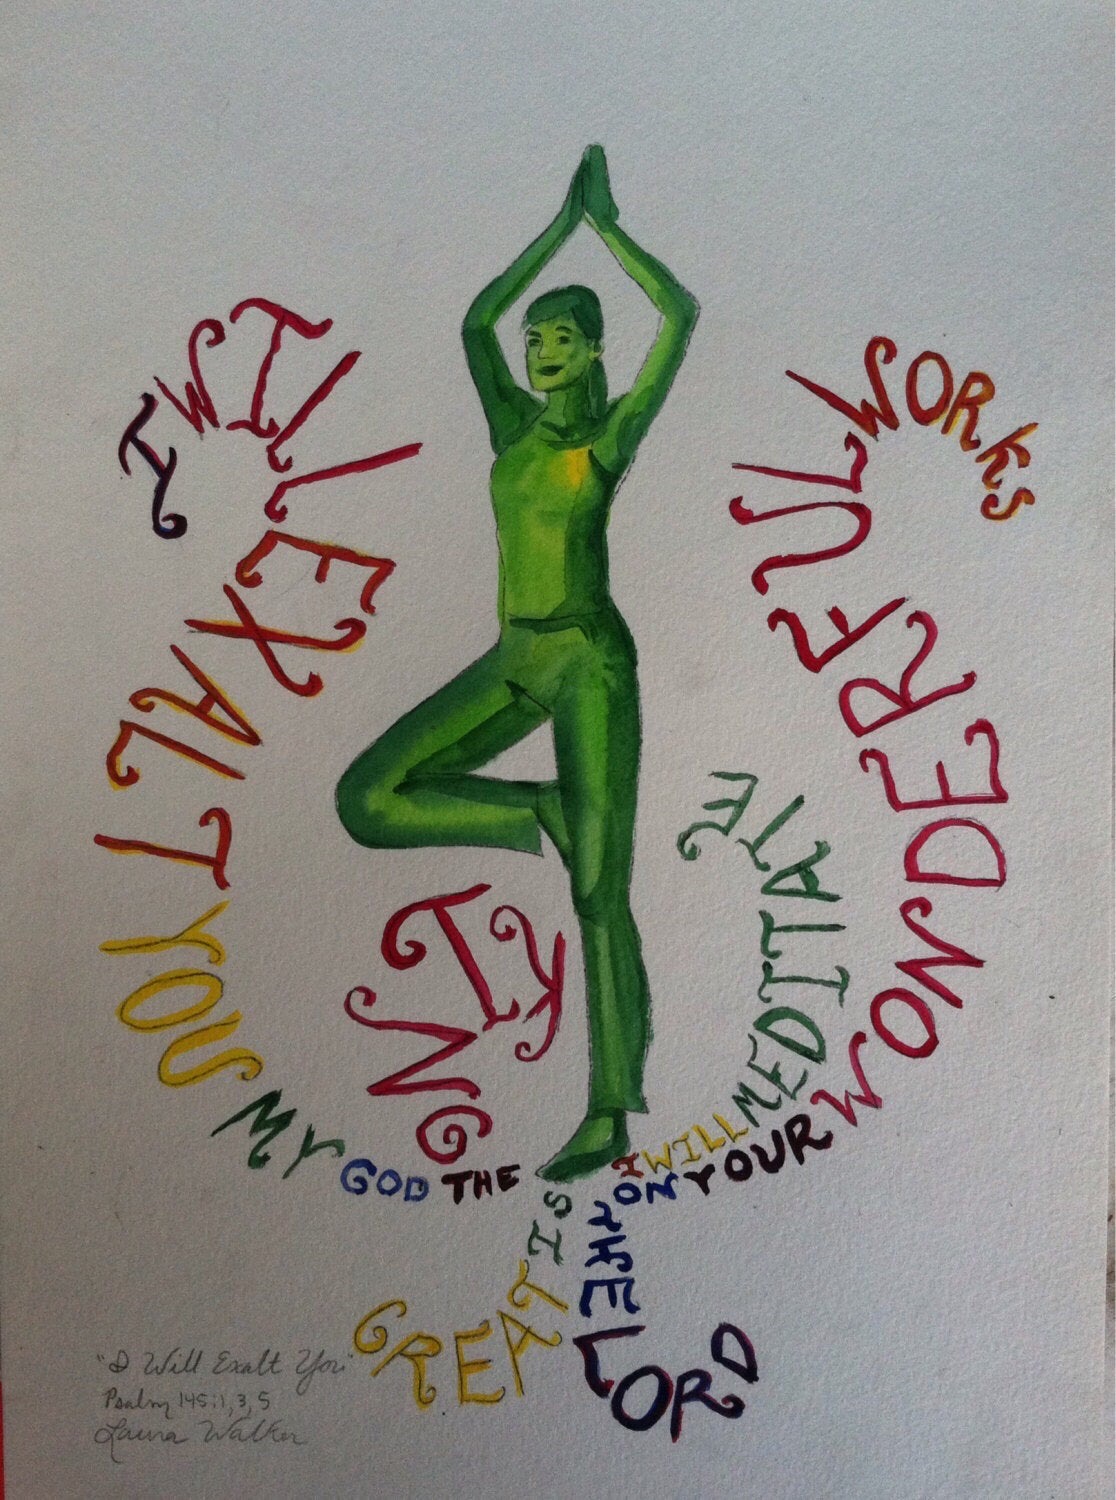 I WILL EXALT YOU MY GOD THE
KING
GREAT IS
THE LORD
I WILL MEDITATE
ON YOUR WONDERFUL WORKS
"I Will Exalt You"
Psalm 145:1, 3, 5
Laura Walker